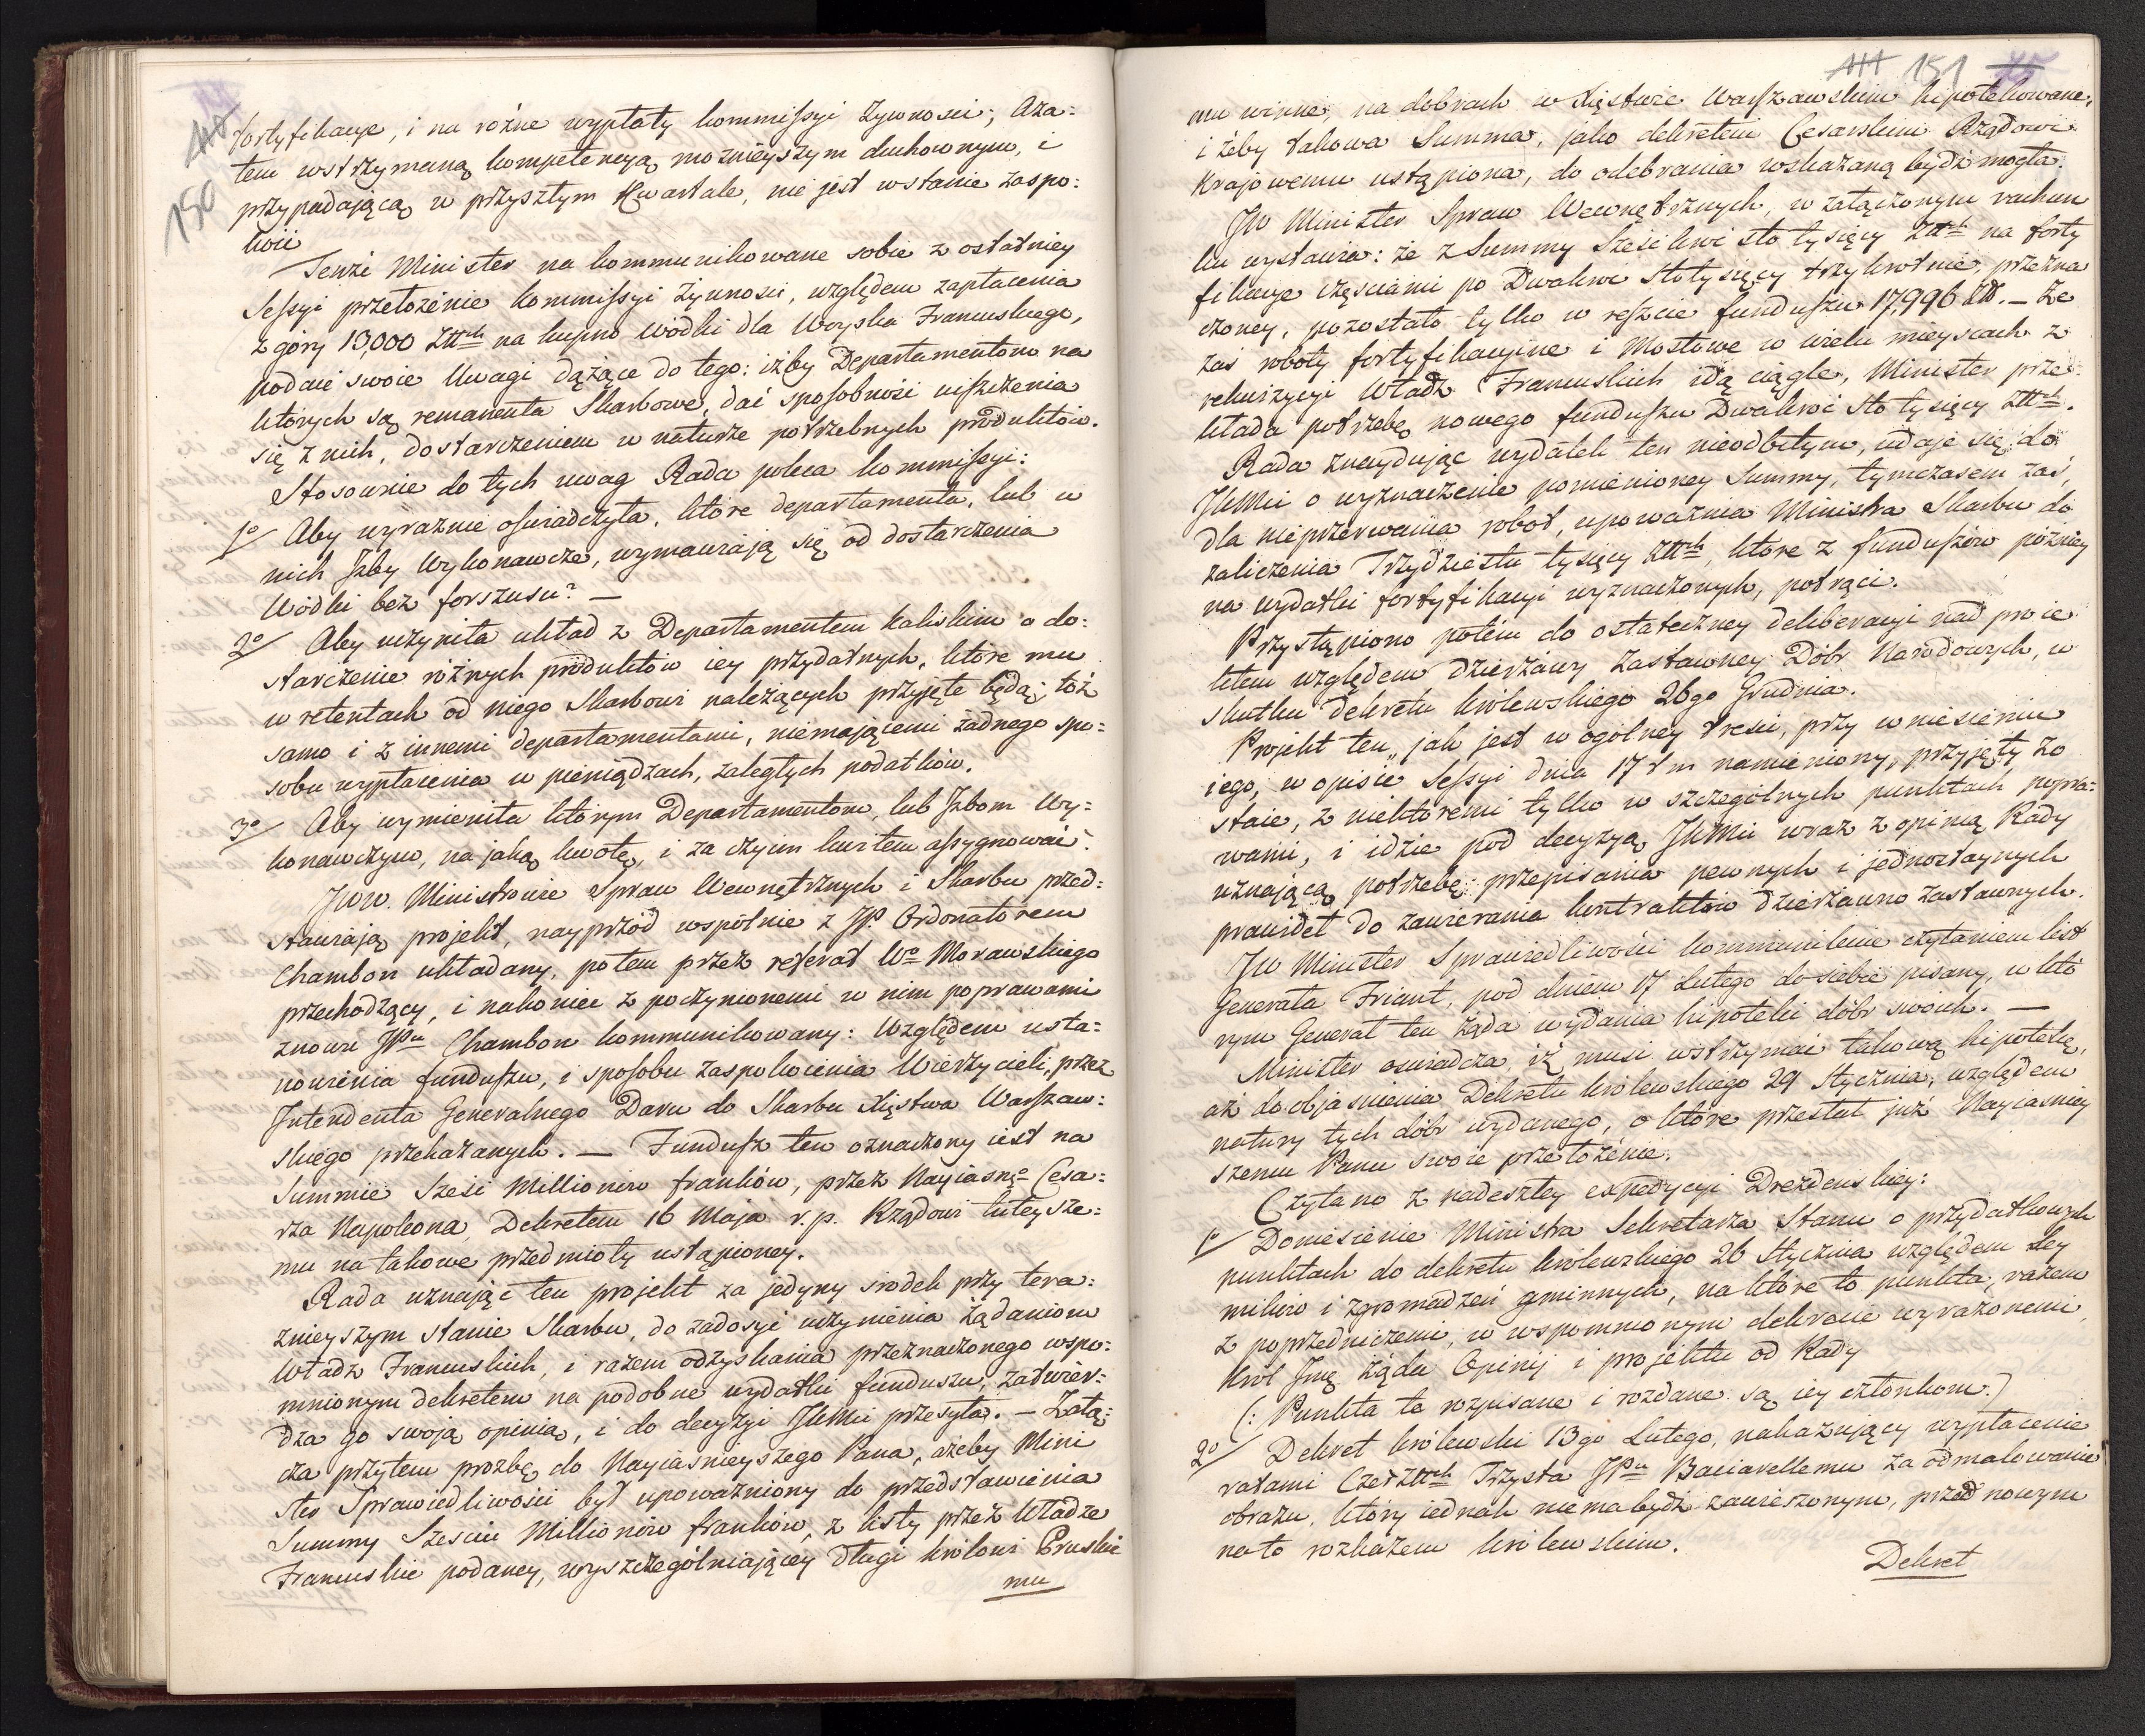 150
fortyfikacye, i na różne wypłaty kommissyi Żywnosci; Aza=
tem wstrzymaną kompetencyą moznieyszym duchownym, i
przypadaiącą w przyszłym Kwartale, nie jest wstanie zaspo=
koić
Tenże Minister na kommunikowane sobie z ostatniey
Sessyi przełożenie kommissyi żywnosci, względem zapłacenia
z góry 13,000 Złłch na kupno wódki dla Woyska Francuskiego,
podaie swoie Uwagi dążące do tego: iżby Departamentom na
których są remanenta Skarbowe, dać sposobność uiszczenia
się z nich, dostarczeniem w naturze potrzebnych produktów.
Stosownie do tych uwag Rada poleca kommissyi:
1o/ Aby wyraznie oświadczyła, które departamenta, lub w
nich Izby Wykonawcze, wymawiają się od dostarczenia
Wódki bez forszusu? —
2o/ Aby uczyniła układ z Departamentem Kaliskim o do=
starczenie różnych produktów iey przydatnych, które mu
w retentach od niego Skarbowi należących przyjęte będą; toż
samo i z innemi departamentami, niemającemi żadnego spo=
sobu wypłacenia w pieniądzach, zaległych podatków.
3o/ Aby wymieniła którym Departamentom, lub Izbom Wy=
konawczym, na jaką kwotę, i za czyim kwitem assygnować?
JWW. Ministrowie Spraw Wewnętrznych i Skarbu przed=
stawiają projekt, nayprzód wspólnie z JP. Ordonatorem
Chambon układany, potem przez referat Wo Morawskiego
przechodzący, i nakoniec z poczynionemi w nim poprawami
znowu JPu Chambon kommunikowany: Względem usta=
nowienia funduszu, i sposobu zaspokoienia Wierzycieli, przez
Intendenta Generalnego Daru do Skarbu Xięstwa Warszaw=
skiego przekazanych. — Fundusz ten oznaczony iest na
Summie Sześć Millionów franków, przez Nayiasnego Cesa=
rza Napoleona, Dekretem 16 Maja r. p. Rządowi tuteysze=
mu na takowe przedmioty ustąpioney.
Rada uznając ten projekt za jedyny srodek przy tera=
znieyszym stanie Skarbu, do zadosyć uczynienia żądaniom
Władz Francuskich, i razem odzyskania przeznaczonego wspo=
mnionym dekretem na podobne wydatki funduszu, zatwier=
dza go swoją opinią, i do decyzyi JKMci przesyła. — Załą=
cza przytem prozbę do Nayiasnieyszego Pana, ażeby Mini
ster Sprawiedliwości był upoważniony do przedstawienia
Summy Szesciu Millionów franków, z listy przez Władze
Francuskie podaney, wyszczególniającey długi królowi Pruskie
mu
151
mu winne, na dobrach w Xięstwie Warszawskim hipotekowane,
i żeby takowa Summa, jako dekretem Cesarskim Rządowi
Krajowemu ustąpiona, do odebrania wskazaną bydź mogła.
JW Minister Spraw Wewnętrznych, w załączonym rachun
ku wystawia: że z Summy Sześćkroć sto tysięcy Złłch na forty
fikacye częściami po Dwakroć Stotysięcy trzykrotnie, przezna
czoney, pozostało tylko w reszcie funduszu 17,996 Złł. — Ze
zaś roboty fortyfikacyine i Mostowe w wielu mieyscach z
rekwizycyi Władz Francuskich idą ciągle, Minister przed=
kłada potrzebę nowego funduszu Dwakroć Sto tysięcy Złłch.
Rada znaydując wydatek ten nieodbitym, udaje się do
JKMci o wyznaczenie pomienioney Summy, tymczasem zaś,
dla nieprzerwania robot, upoważnia Ministra Skarbu do
zaliczenia Trzydziestu tysięcy Złłch, które z funduszów pózniey
na wydatki fortyfikacyi wyznaczonych, potrąci.
Przystąpiono potém do ostateczney deliberacyi nad proie
ktem względem dzierżawy zastawney Dóbr Narodowych, w
skutku Dekretu królewskiego 26go Grudnia.
Projekt ten, jak jest w ogólney treści, przy wniesieniu
iego, w opisie Sessyi dnia 17 t m namieniony, przyjęty zo
staie, z niektóremi tylko w szczególnych punktach popra=
wami, i idzie pod decyzyą JKMci wraz z opinią Rady
uznającą potrzebę przepisania pewnych i jednostaynych
prawideł do zawierania kontraktów dzierżawno zastawnych.
JW Minister Sprawiedliwości kommunikuie czytaniem list
Generała Friant, pod dniem 17 Lutego do siebie pisany, w któ
rym Generał ten żąda wydania hipoteki dóbr swoich. —
Minister oswiadcza, iż musi wstrzymać takową hipotekę,
aż do objasnienia Dekretu królewskiego 29 Stycznia, względem
natury tych dóbr wydanego, o które przesłał już Nayiasniey
szemu Panu swoie przełożenie.
Czytano z nadeszłey expedycyi Drezdenskiey:
1o/ Doniesienie Ministra Sekretarza Stanu o przydatkowych
punktach do dekretu królewskiego 26 Stycznia względem Sey
mików i zgromadzeń gminnych, na które to punkta, razem
z poprzedniczemi, w wspomnionym dekrecie wyrażonemi,
Król Jmć żąda Opinij i projektu od Rady
(: Punkta te rozpisane i rozdane są iey członkom.)
2o/ Dekret królewski 13go Lutego, nakazujący wypłacenie
ratami Czerzłłch Trzysta JPu Bacciarellemu za odmalowanie
obrazu, który iednak niema bydź zawieszonym, przed nowym
nato rozkazem królewskim.
Dekret